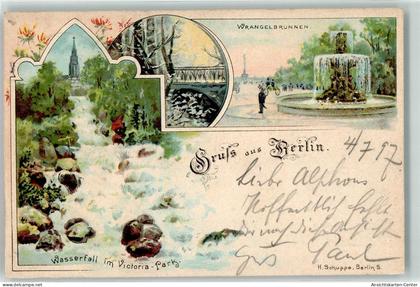 WRANGELBRUNNEN
Gruss aus Berlin.
4/7 97
Liebe Alphons
Hoffentlich
Paul
Wasserfall im Victoria-Park
H. Schuppe, Berlin S.
www.ansichtskarten-center.de
Ansichtskarten-Center